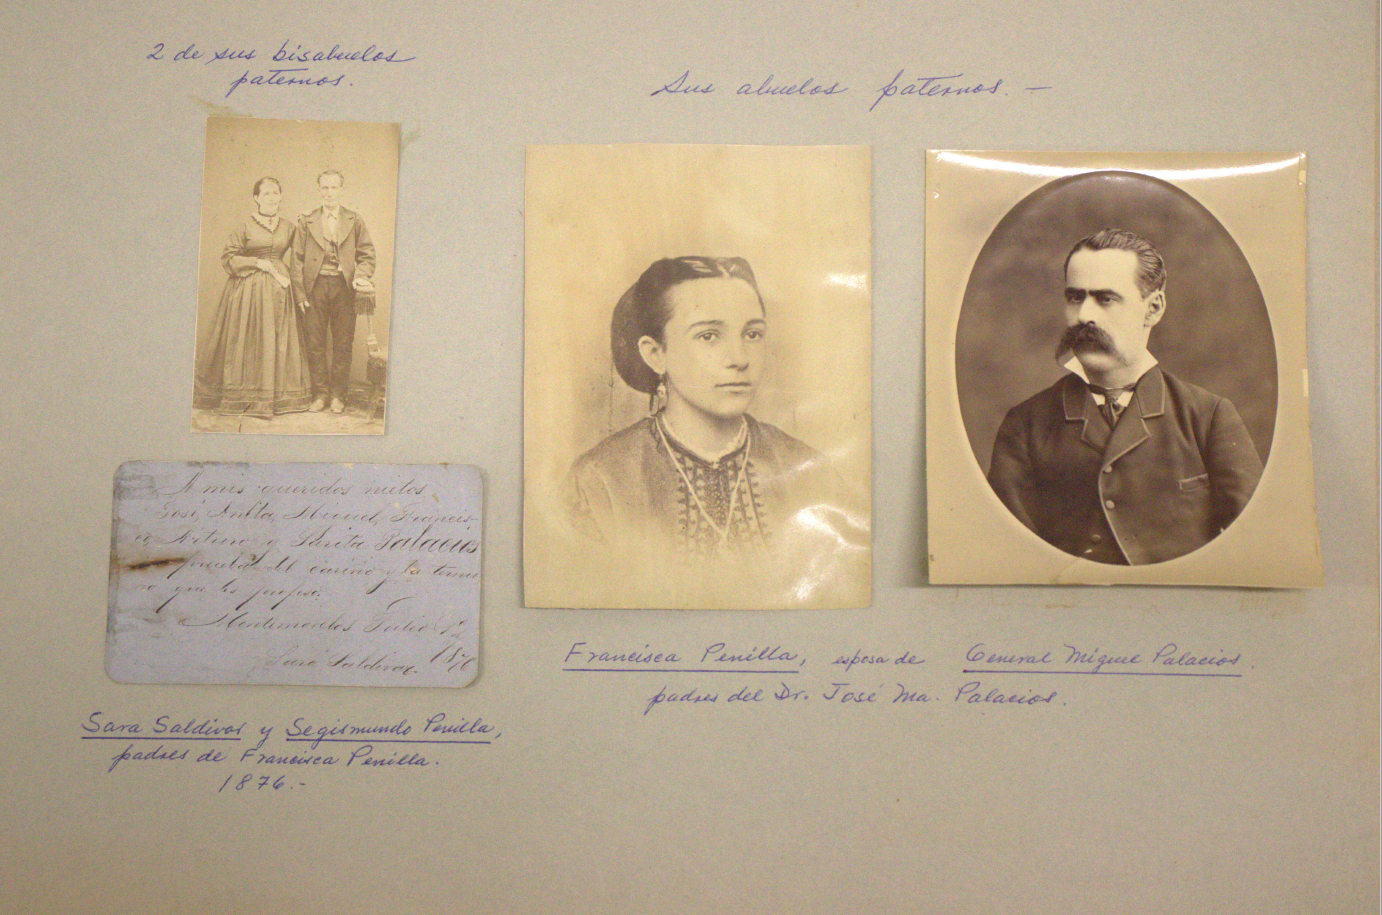 2 de sus bisabuelos
paternos.
Sus abuelos paternos. —
A mis queridos nietos
José, Anita, Manuel, Francis-
co, Arturo y Sarita Palacios
prueba del cariño y la ternu
ra que les profeso.
Montemorelos Julio 12
1876
Sara Saldivar.
Sara Saldivar y Segismundo Penilla,
padres de Francisca Penilla.
1876.-
Francisca Penilla, esposa de General Miguel Palacios.
padres del Dr. José Ma. Palacios.